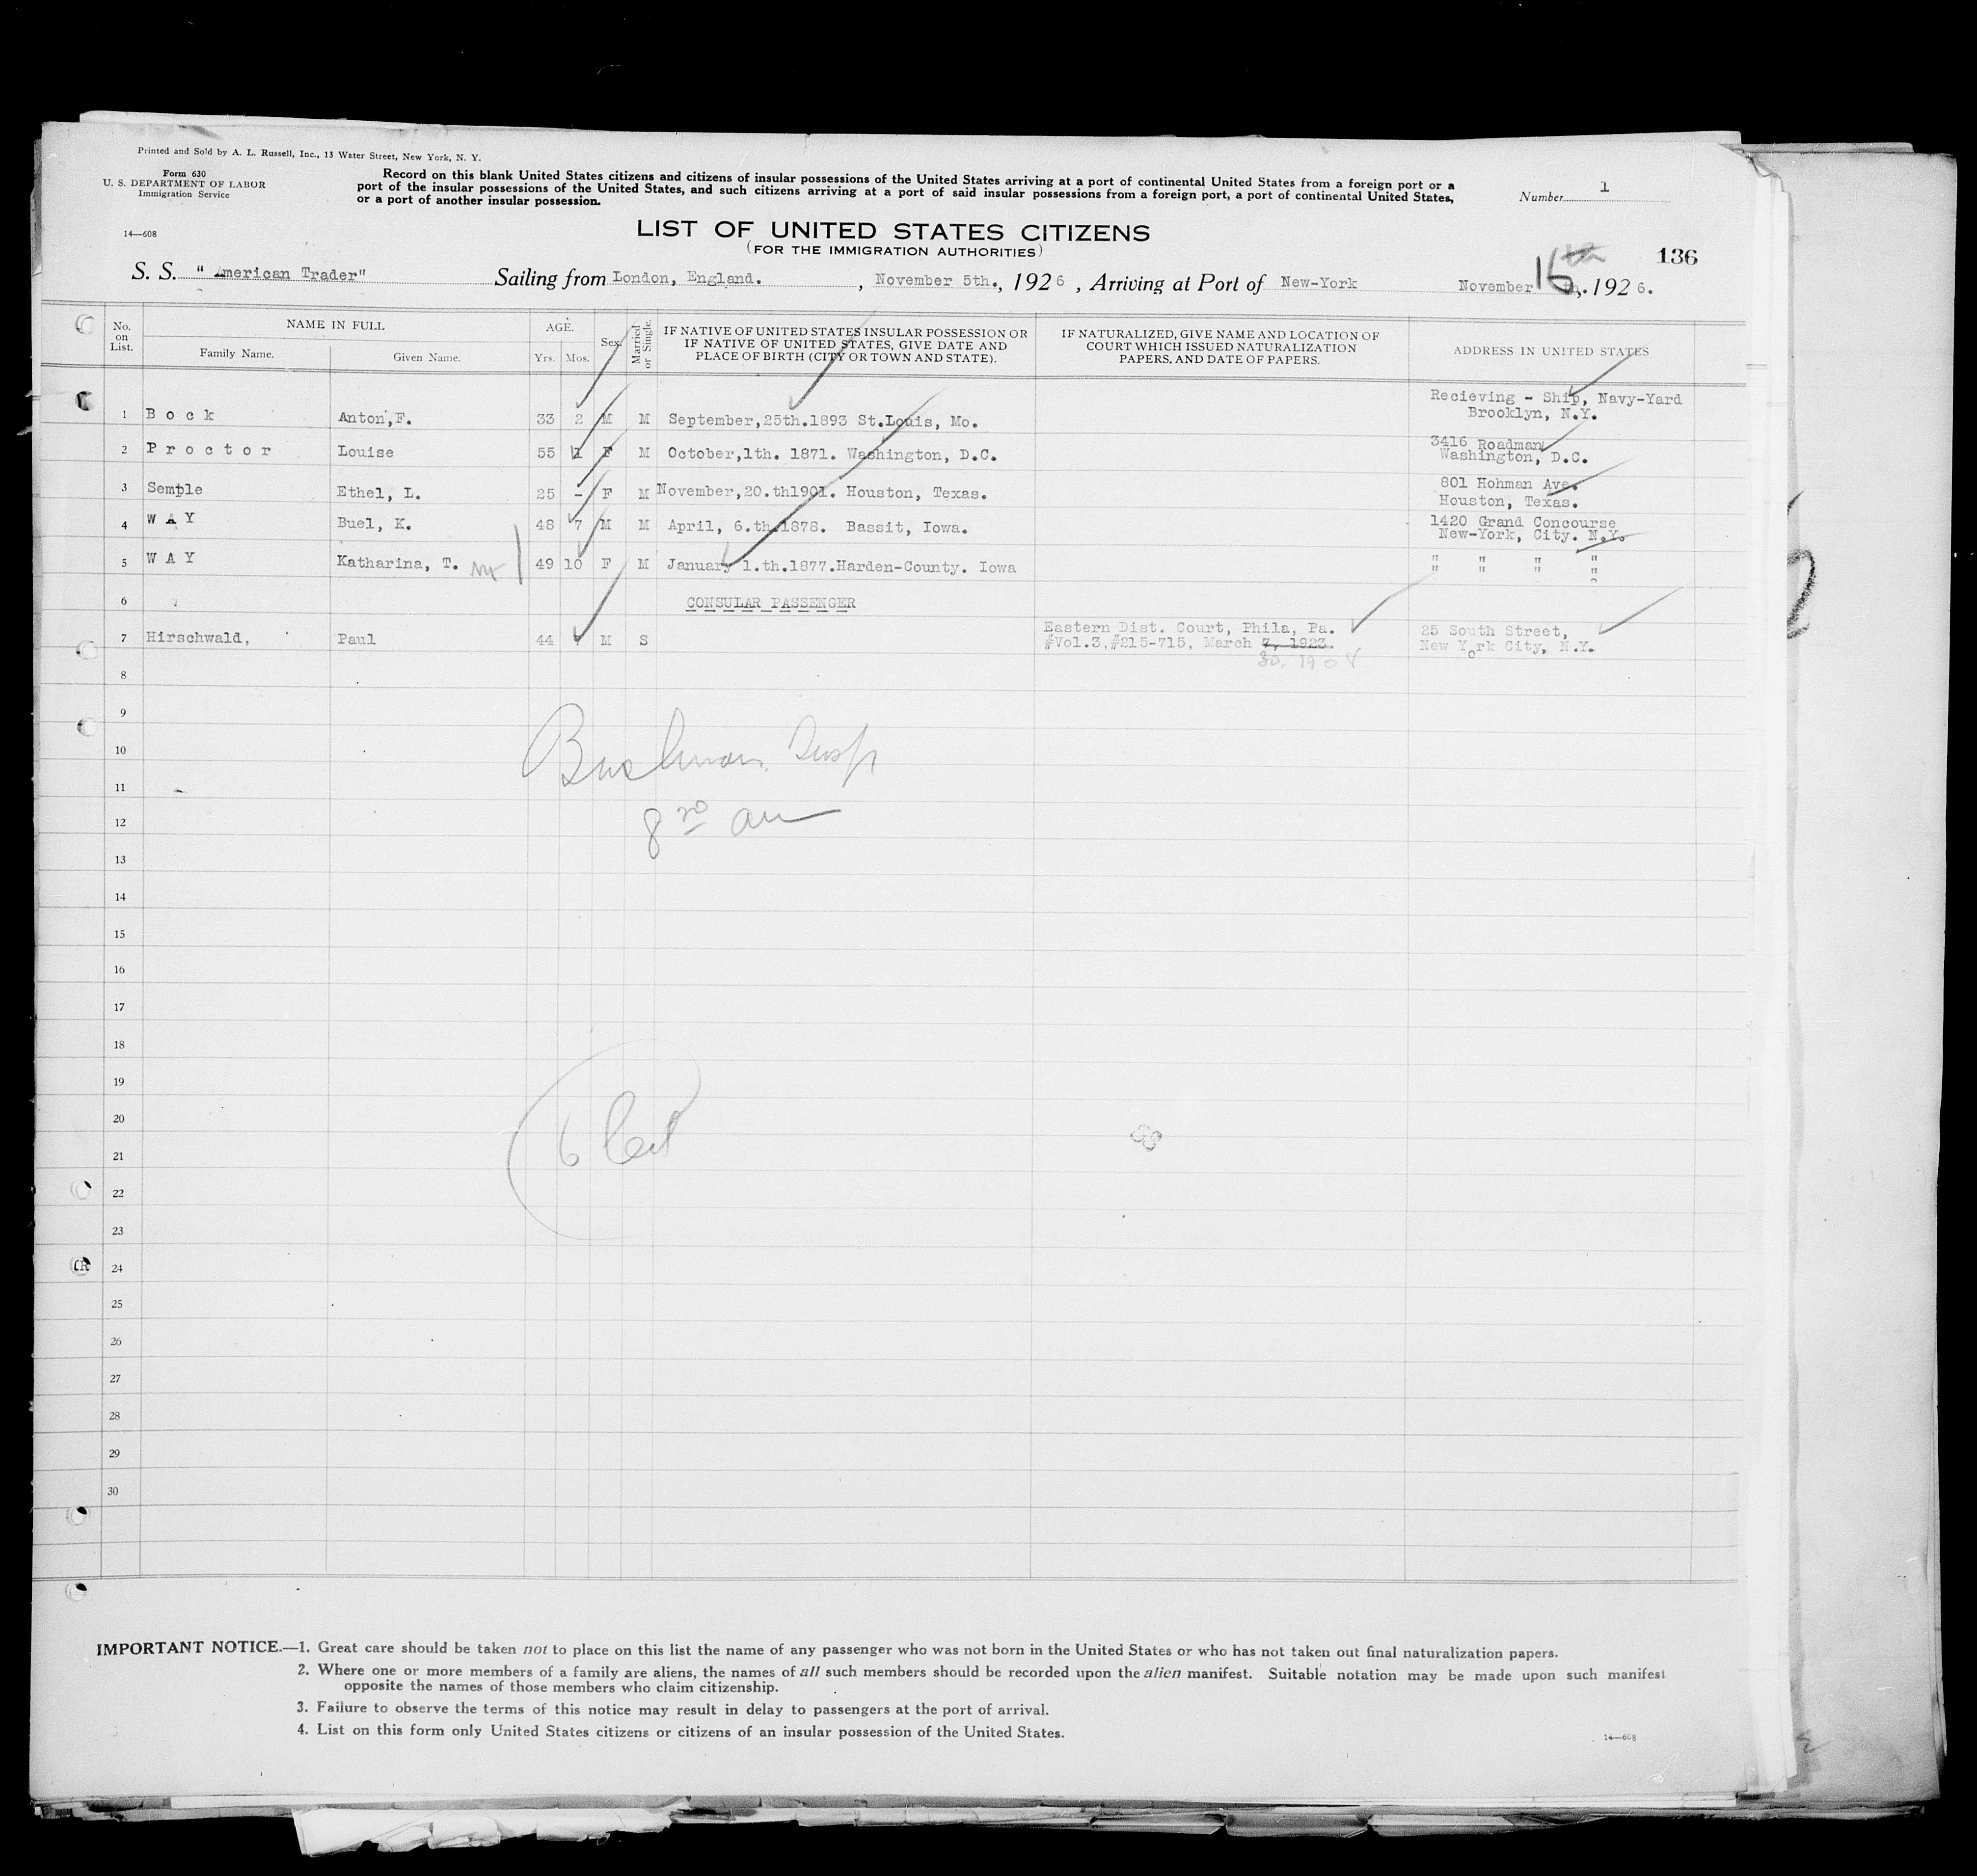 Printed and Sold by A. L. Russell, Inc., 13 Water Street, New York, N. Y.
Form 630
U. S. DEPARTMENT OF LABOR
Immigration Service
14—608
Record on this blank United States citizens and citizens of insular possessions of the United States arriving at a port of continental United States from a foreign port or a
port of the insular possessions of the United States, and such citizens arriving at a port of said insular possessions from a foreign port, a port of continental United States,
or a port of another insular possession.
Number 1
LIST OF UNITED STATES CITIZENS
(FOR THE IMMIGRATION AUTHORITIES)
136
S. S. "American Trader" Sailing from London, England. , November 5th., 1926 , Arriving at Port of New-York November 16th, 1926.
No. on List. NAME IN FULL Family Name. Given Name. AGE. Yrs. Mos. Sex. Married or Single. IF NATIVE OF UNITED STATES INSULAR POSSESSION OR IF NATIVE OF UNITED STATES, GIVE DATE AND PLACE OF BIRTH (CITY OR TOWN AND STATE). IF NATURALIZED, GIVE NAME AND LOCATION OF COURT WHICH ISSUED NATURALIZATION PAPERS, AND DATE OF PAPERS. ADDRESS IN UNITED STATES
1 Bock Anton,F. 33 2 M M September,25th.1893 St.Louis, Mo. Recieving - Ship, Navy-Yard Brooklyn, N.Y.
2 Proctor Louise 55 1 F M October,1th. 1871. Washington, D.C. 3416 Roadman Washington, D.C.
3 Semple Ethel, L. 25 - F M November,20.th1901. Houston, Texas. 801 Hohman Ave. Houston, Texas.
4 WAY Buel, K. 48 7 M M April, 6.th.1878. Bassit, Iowa. 1420 Grand Concourse New-York, City. N.Y.
5 WAY Katharina, T. 49 10 F M January 1.th.1877.Harden-County. Iowa " " " " " " " "
6 CONSULAR PASSENGER
7 Hirschwald, Paul 44 M S Eastern Dist. Court, Phila, Pa. #Vol.3,#215-715, March 7, 1923. 30, 190 25 South Street, New York City, N.Y.
8
9
10
11
12
13
14
15
16
17
18
19
20
21
22
23
24
25
26
27
28
29
30
IMPORTANT NOTICE.—1. Great care should be taken not to place on this list the name of any passenger who was not born in the United States or who has not taken out final naturalization papers.
2. Where one or more members of a family are aliens, the names of all such members should be recorded upon the alien manifest. Suitable notation may be made upon such manifest
opposite the names of those members who claim citizenship.
3. Failure to observe the terms of this notice may result in delay to passengers at the port of arrival.
4. List on this form only United States citizens or citizens of an insular possession of the United States.
14—608